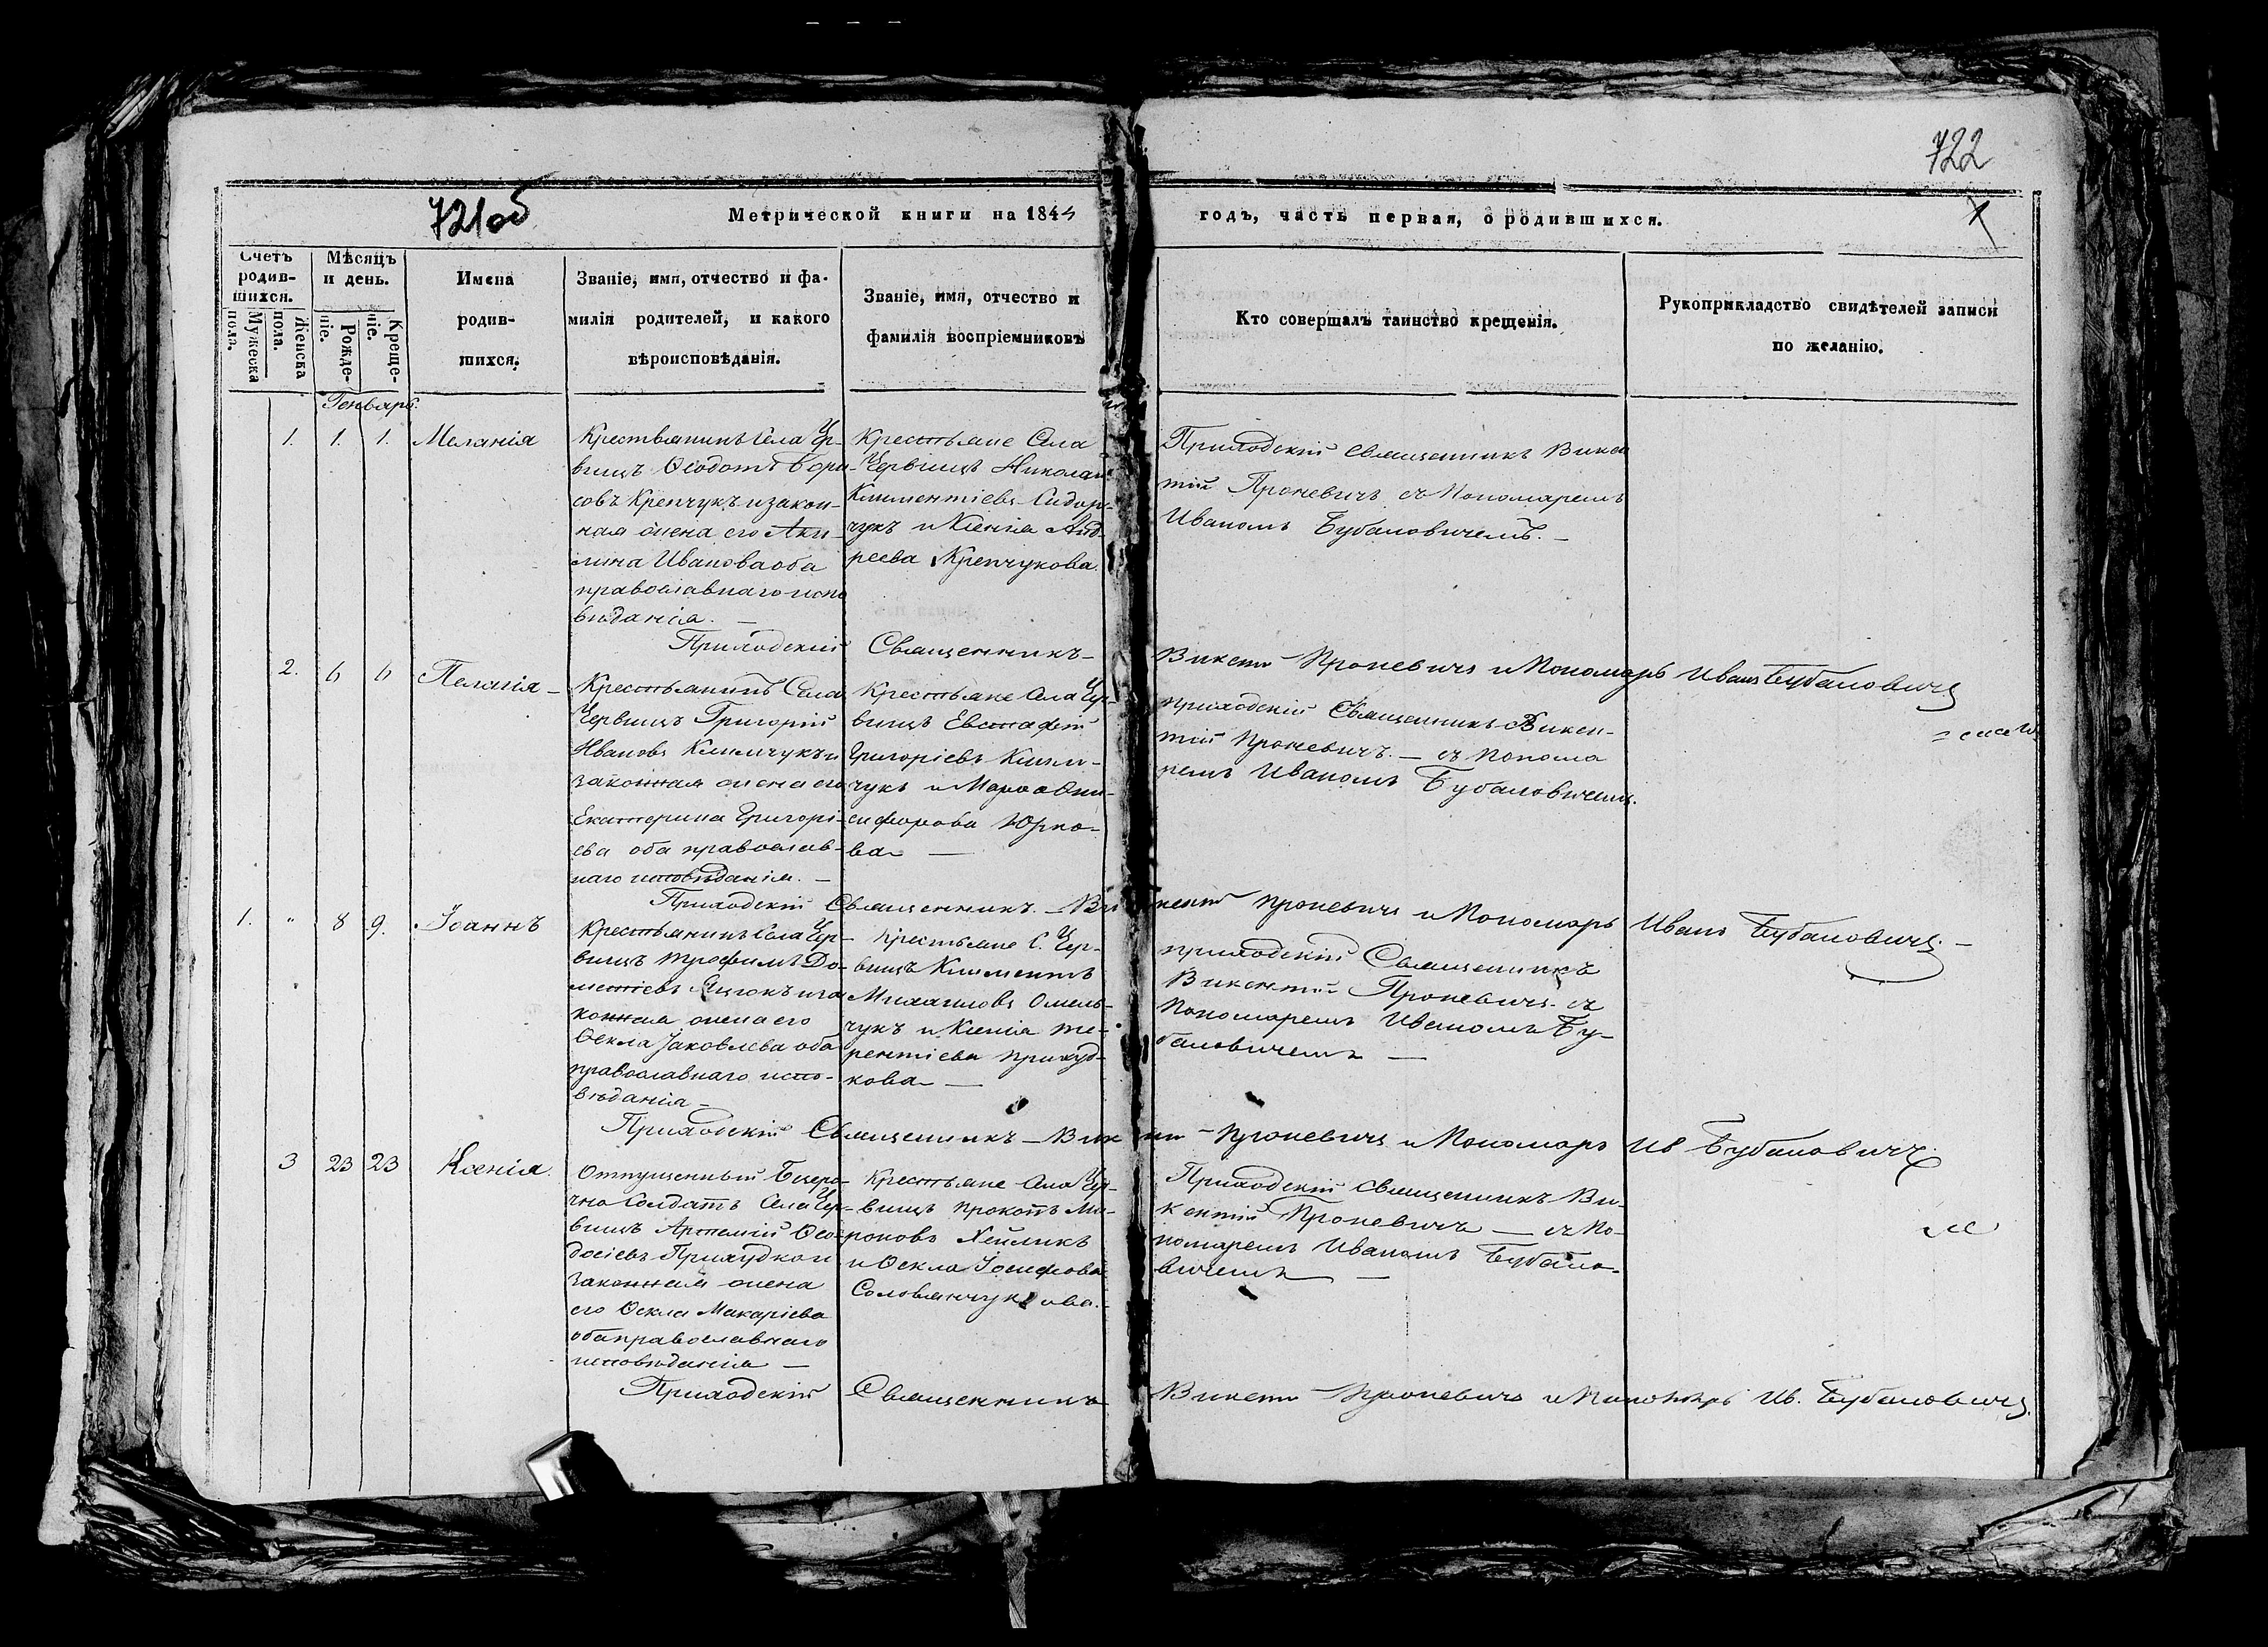 722
721об
Метрической книги на 1844
годъ, часть первая, о родившихся.
1
Счетъ родив-шихся.
Мужеска пола.
Женска пола.
Мѣсяцъ и день.
Рожде-ніе.
Креще-ніе.
Имена
родив-
шихся.
Званіе, имя, отчество и фа-
милія родителей, и какого
вѣроисповѣданія.
Званіе, имя, отчество и
фамилія воспріемниковъ
Кто совершалъ таинство крещенія.
Рукоприкладство свидѣтелей записи
по желанію.
Генварь.
1. 1. 1. Меланія
Крестьянинъ Села Чер-
вищъ Ѳеодотъ Бори-
совъ Крепчукъ и закон-
ная жена его Аки-
лина Иванова оба
православнаго испо
вѣданія. —
Крестьяне Села
Червищъ Николай
Климентіевъ Сидор-
чукъ и Ксенія Анд-
реева Крепчукова.
Приходскій Священникъ Викен
тій Проневичъ съ Пономаремъ
Иваномъ Бубановичемъ. —
Приходскій Священникъ Викент Проневичъ и Пономарь Иванъ Бубановичъ
2. 6 6 Пелагія —
Крестьянинъ Села
Червищъ Григорій
Ивановъ Климчукъ и
законная жена его
Екатерина Григорі-
ева оба православ-
наго исповѣданія. —
Крестьяне Села Чер-
вищъ Евстафій
Григоріевъ Клим-
чукъ и Марѳа Они-
сифорова Юрко-
ва —
приходскій Священникъ Викен-
тій Проневичъ. — съ Понома
ремъ Иваномъ Бубановичемъ.
Приходскій Священникъ. Викент Проневичъ и Пономарь Иванъ Бубановичъ. —
1. " 8 9. Іоаннъ
Крестьянинъ Села Чер-
вищъ Трофимъ До-
метіевъ Яцюкъ и за
конная жена его
Ѳекла Іаковлева оба
православнаго испо-
вѣданія —
Крестьяне С. Чер-
вищъ Климентъ
Михаиловъ Омель-
чукъ и Ксенія Те-
рентіева Прихуд-
кова —
приходскій Священникъ
Викентій Проневичъ съ
Пономаремъ Иваномъ Бу-
бановичемъ —
Приходскій Священникъ — Викент Проневичъ и Пономарь Ив Бубановичъ.
3 23 23 Ксенія.
Отпущенный Безсро-
чно Солдатъ Села Чер-
вищъ Артемій Ѳео-
досіевъ Прихудко и
законная жена
его Ѳекла Макаріева
оба православнаго
исповѣданія —
Крестьяне Села Чер-
вищъ Прокопъ Ми-
роновъ Хейликъ
и Ѳекла Іосифова
Соловянчукова.
Приходскій Священникъ Ви-
кентій Проневичъ — съ По-
номаремъ Иваномъ Бубано-
вичемъ —
Приходскій Священникъ Викент Проневичъ и Пономарь Ив. Бубановичъ.